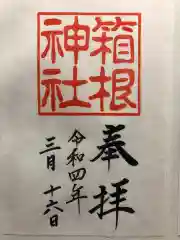 箱根
神社
奉拝
令和四年
三月十六日